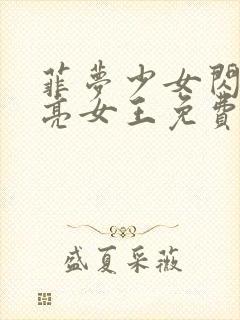 菲夢少女閃
亮女王免費
盛夏采薇